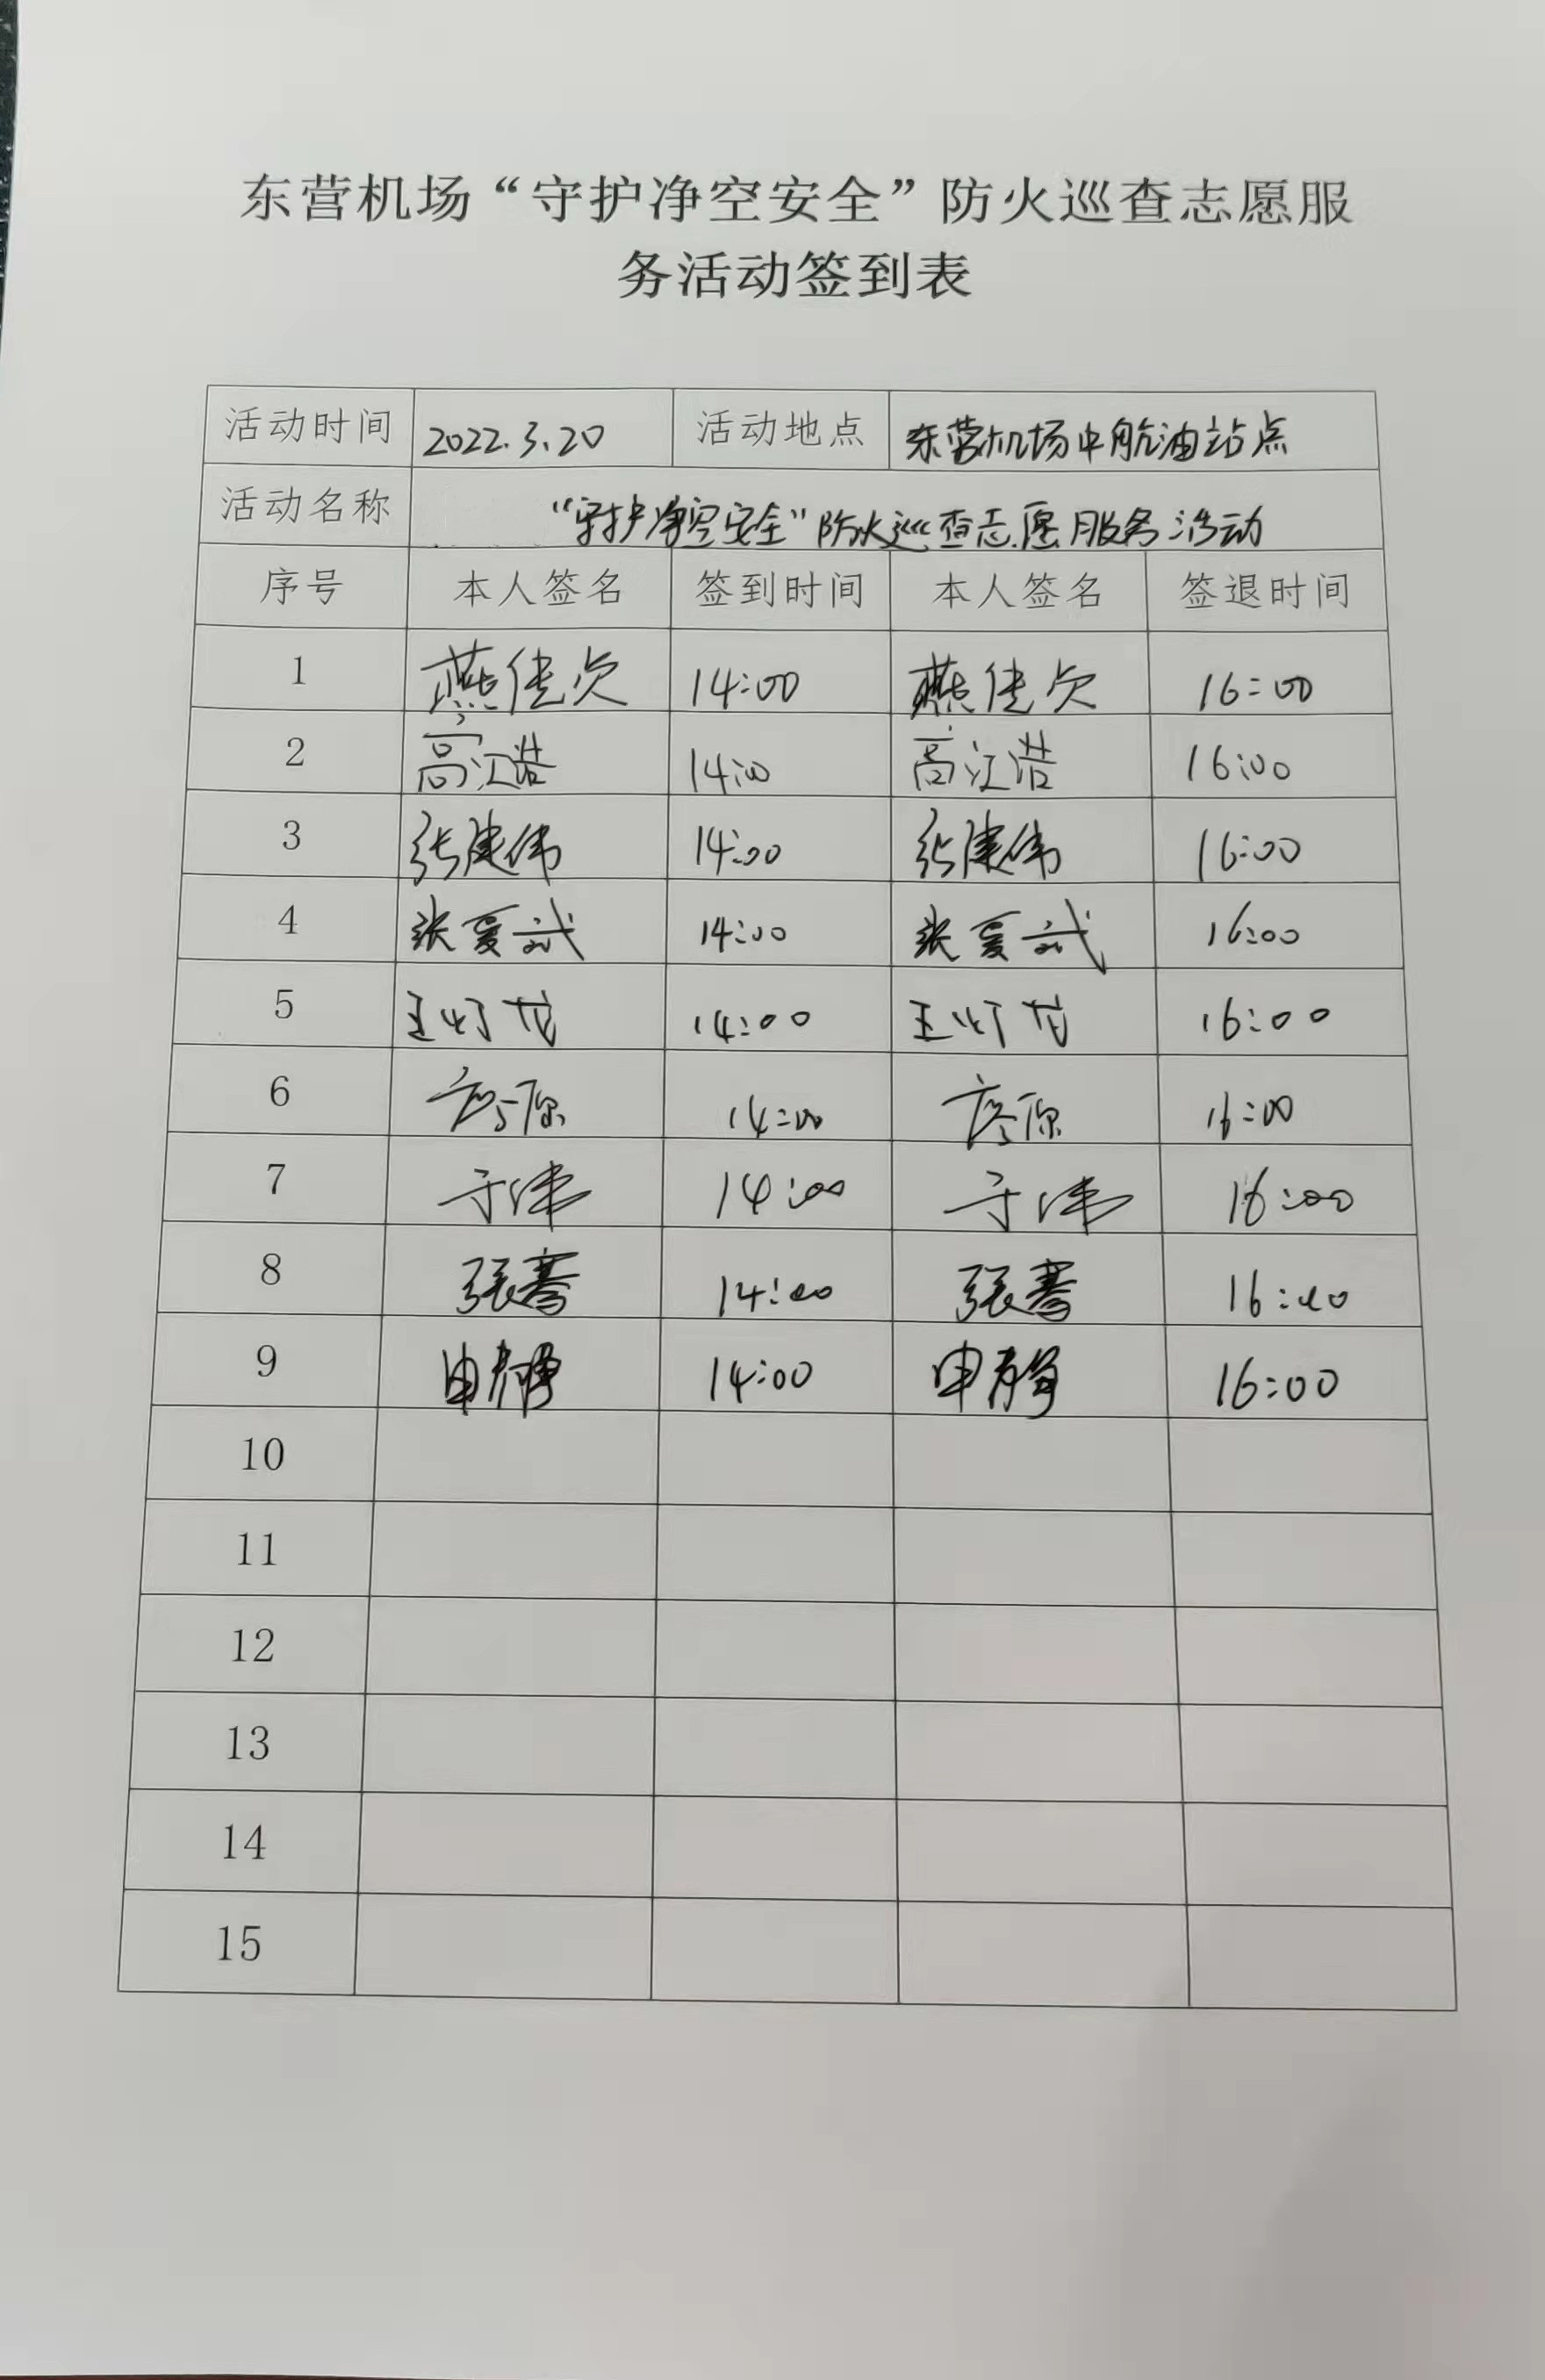 东营机场“守护净空安全”防火巡查志愿服
务活动签到表
活动时间 2022.3.20 活动地点 东营机场中航油站点
活动名称 “守护净空安全”防火巡查志愿服务活动
序号 本人签名 签到时间 本人签名 签退时间
1 燕佳 14:00 燕佳 16:00
2 高江浩 14:00 高江浩 16:00
3 张建伟 14:00 张建伟 16:00
4 张夏斌 14:00 张夏斌 16:00
5 王灯龙 14:00 王灯龙 16:00
6 14:00 16:00
7 于伟 14:00 于伟 16:00
8 张骞 14:00 张骞 16:00
9 申静 14:00 申静 16:00
10
11
12
13
14
15